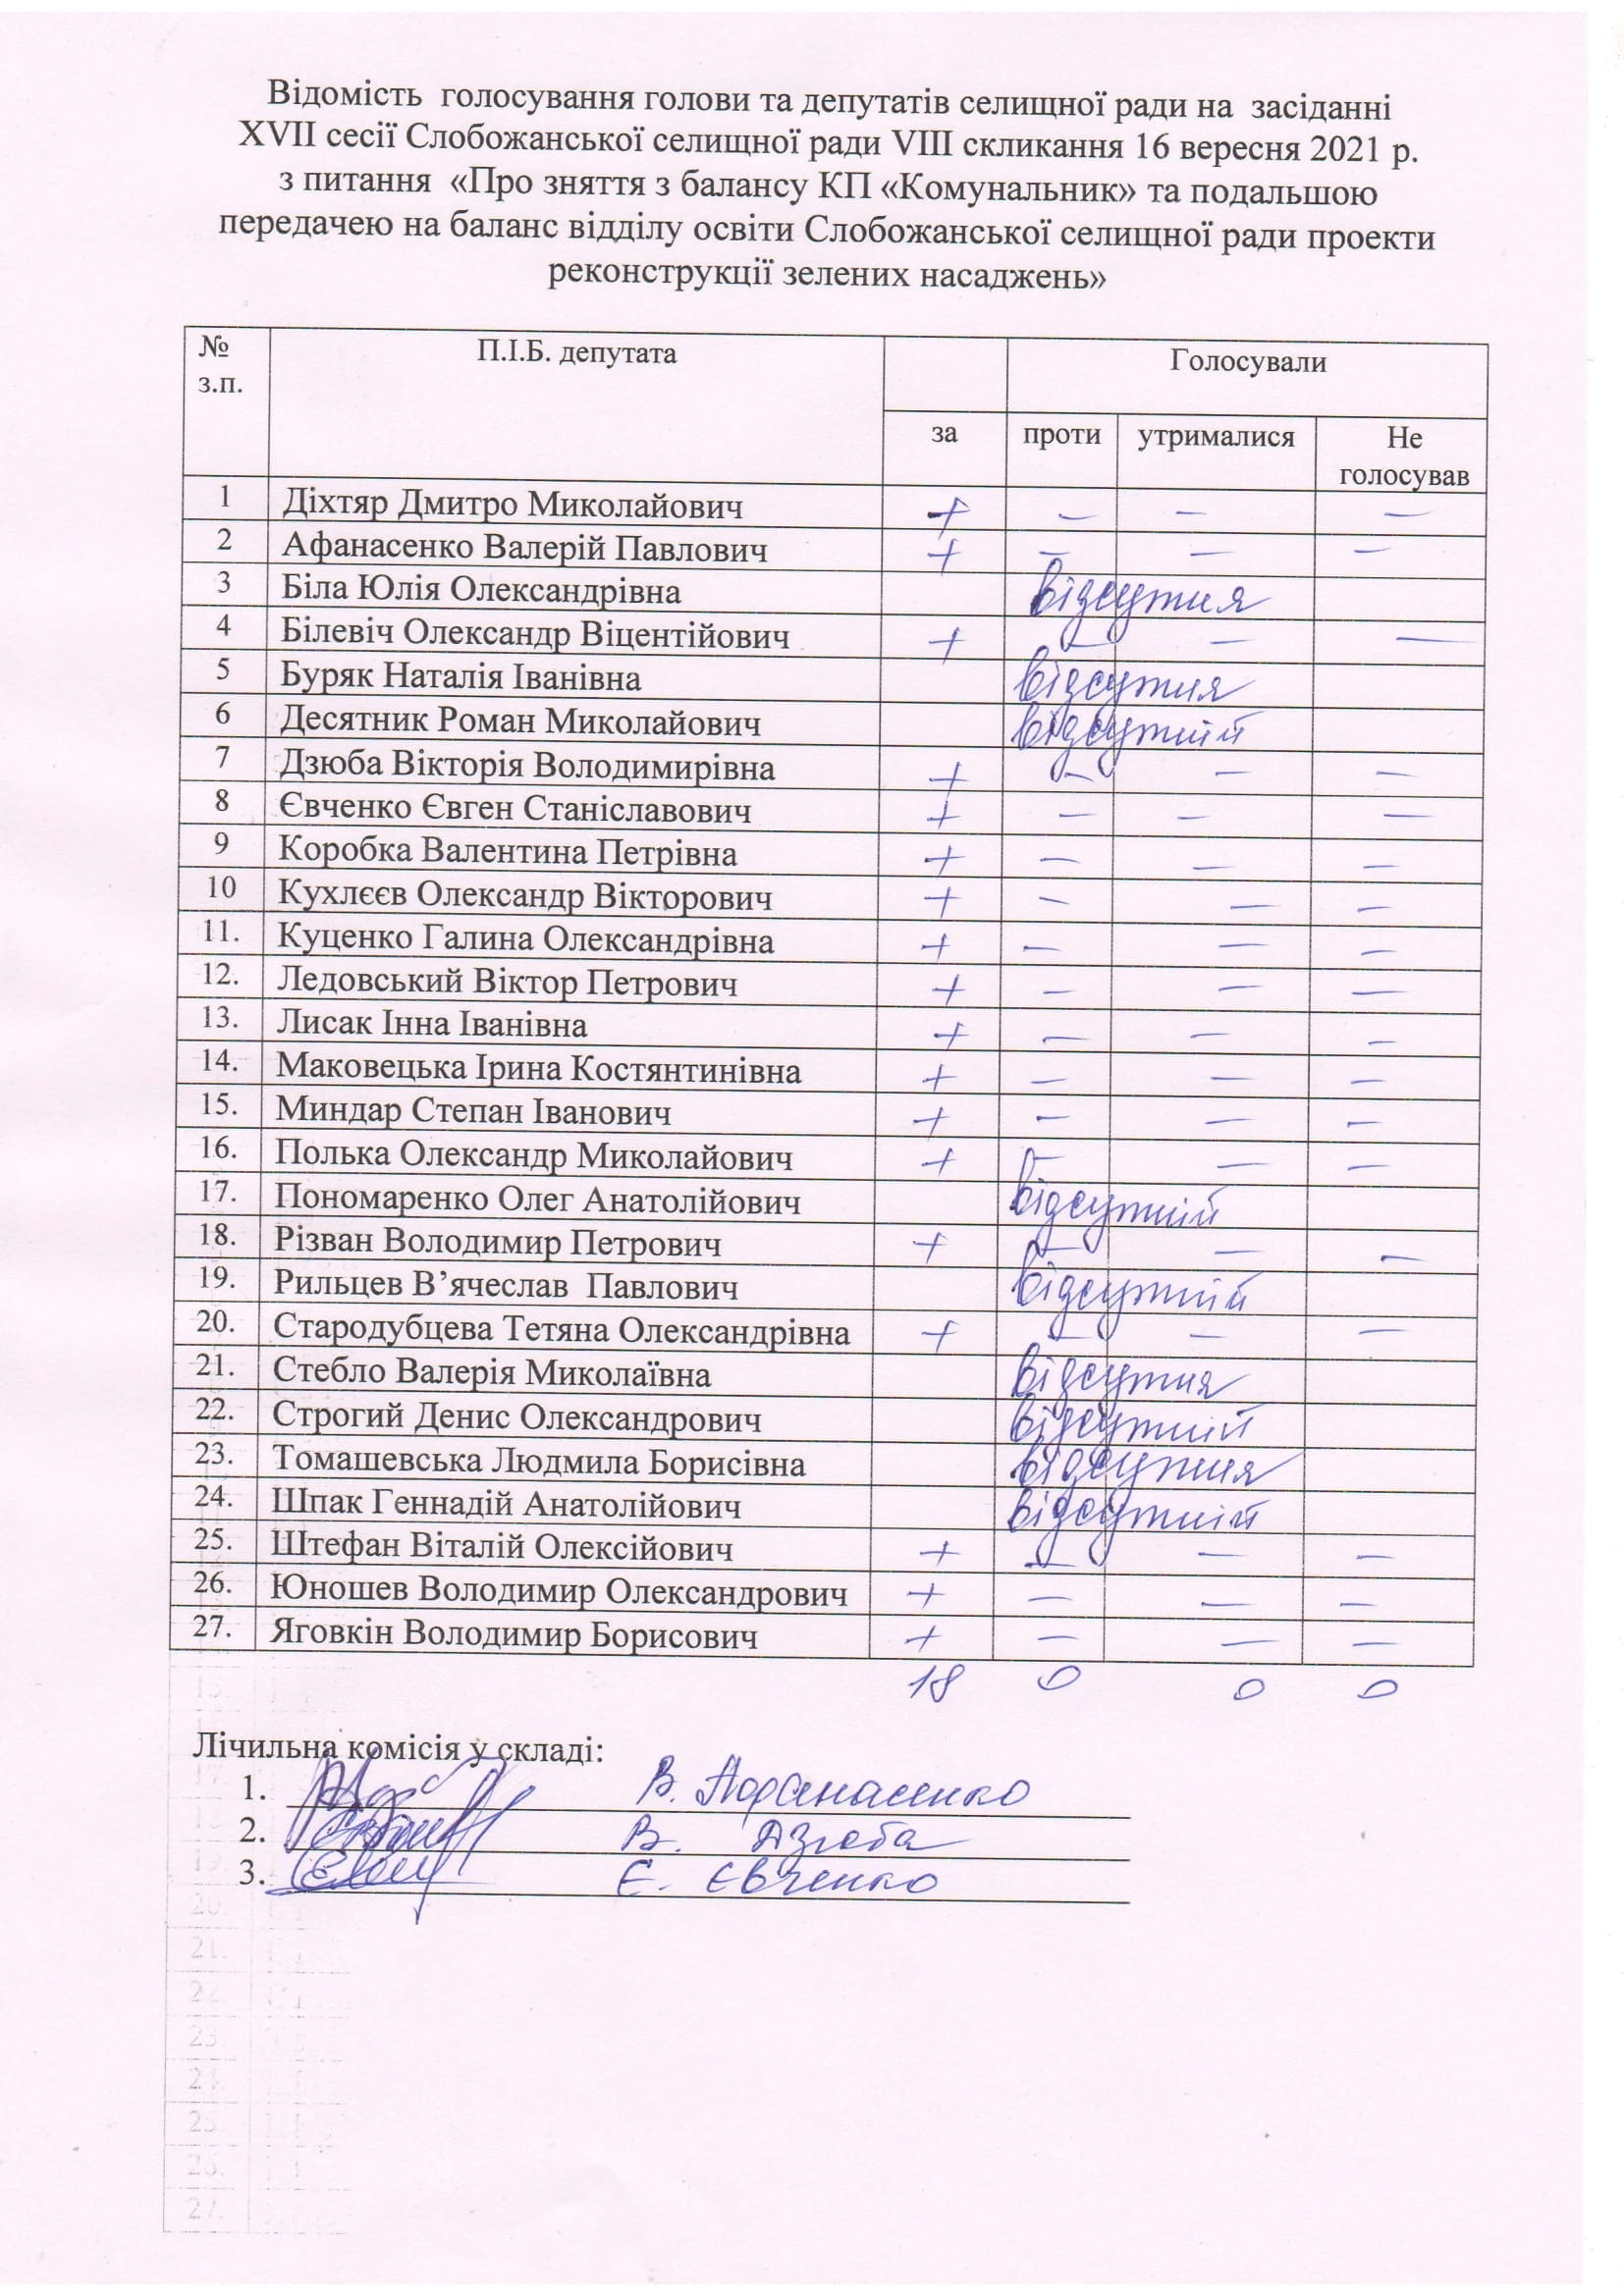 Відомість голосування голови та депутатів селищної ради на засіданні
XVII сесії Слобожанської селищної ради VIII скликання 16 вересня 2021 р.
з питання «Про зняття з балансу КП «Комунальник» та подальшою
передачею на баланс відділу освіти Слобожанської селищної ради проекти
реконструкції зелених насаджень»
№ з.п. П.І.Б. депутата Голосували
за проти утрималися Не голосував
1 Діхтяр Дмитро Миколайович + – – –
2 Афанасенко Валерій Павлович + – – –
3 Біла Юлія Олександрівна відсутня
4 Білевіч Олександр Віцентійович + – – –
5 Буряк Наталія Іванівна відсутня
6 Десятник Роман Миколайович відсутній
7 Дзюба Вікторія Володимирівна + – – –
8 Євченко Євген Станіславович + – – –
9 Коробка Валентина Петрівна + – – –
10 Кухлєєв Олександр Вікторович + – – –
11. Куценко Галина Олександрівна + – – –
12. Ледовський Віктор Петрович + – – –
13. Лисак Інна Іванівна + – – –
14. Маковецька Ірина Костянтинівна + – – –
15. Миндар Степан Іванович + – – –
16. Полька Олександр Миколайович + – – –
17. Пономаренко Олег Анатолійович відсутній
18. Різван Володимир Петрович + – – –
19. Рильцев В’ячеслав Павлович відсутній
20. Стародубцева Тетяна Олександрівна + – – –
21. Стебло Валерія Миколаївна відсутня
22. Строгий Денис Олександрович відсутній
23. Томашевська Людмила Борисівна відсутня
24. Шпак Геннадій Анатолійович відсутній
25. Штефан Віталій Олексійович + – – –
26. Юношев Володимир Олександрович + – – –
27. Яговкін Володимир Борисович + – – –
18 0 0 0
Лічильна комісія у складі:
1. В. Афанасенко
2. В. Дзюба
3. Є. Євченко